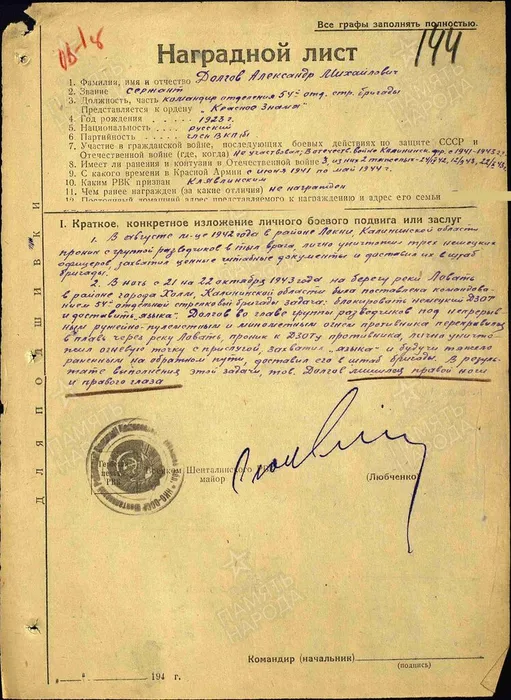 Все графы заполнять полностью.
05-18
144
Наградной лист
1. Фамилия, имя и отчество Долгов Александр Михайлович
2. Звание сержант
3. Должность, часть командир отделения 54 отд. стр. бригады
Представляется к ордену „Красное Знамя"
4. Год рождения 1923 г.
5. Национальность русский
6. Партийность член ВКП/б/
7. Участие в гражданской войне, последующих боевых действиях по защите СССР и
Отечественной войне (где, когда) не участвовал; В отечеств. войне Калининск. фр. с 1941-1943 г.
8. Имеет ли ранения и контузии в Отечественной войне 3, из них 2 тяжелых
9. С какого времени в Красной Армии с июня 1941 по май 1944 г.
10. Каким РВК призван Клявлинским
11. Чем ранее награжден (за какие отличия) не награжден
12. Постоянный домашний адрес представляемого к награждению и адрес его семьи
I. Краткое, конкретное изложение личного боевого подвига или заслуг
1. В августе м-це 1942 года в районе Локни, Калининской области
проник с группой разведчиков в тыл врага, лично уничтожил трех немецких
офицеров, захватил ценные штабные документы и доставил их в штаб
бригады.
2. В ночь с 21 на 22 октября 1943 года на берегу реки Ловать
в районе города Холм, Калининской области была поставлена командова-
нием 54 отдельной стрелковой бригады задача: блокировать немецкий ДЗОТ
и доставить „языка". Долгов во главе группы разведчиков под непрерыв-
ным ружейно-пулеметным и минометным огнем противника переправился
вплавь через реку Ловать, проник к ДЗОТу противника, лично уничто-
жил огневую точку с прислугой, захватил „языка" и будучи тяжело
раненным на обратном пути, доставил его в штаб бригады. В резуль-
тате выполнения этой задачи, тов. Долгов лишился правой ноги
и правого глаза
ДЛЯ ПОДШИВКИ
Шенталинского
майор
(Любченко)
Командир (начальник)
(подпись)
„ " 194 г.
ПАМЯТЬ
НАРОДА